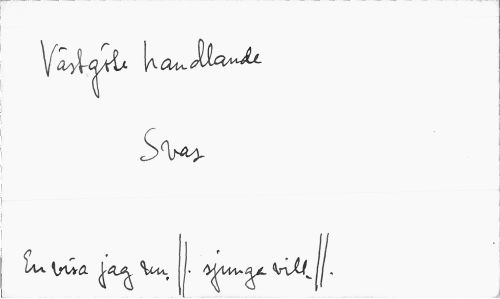 Västgöte handlande
Svas
En visa jag nu, ||. sjunga vill, ||.